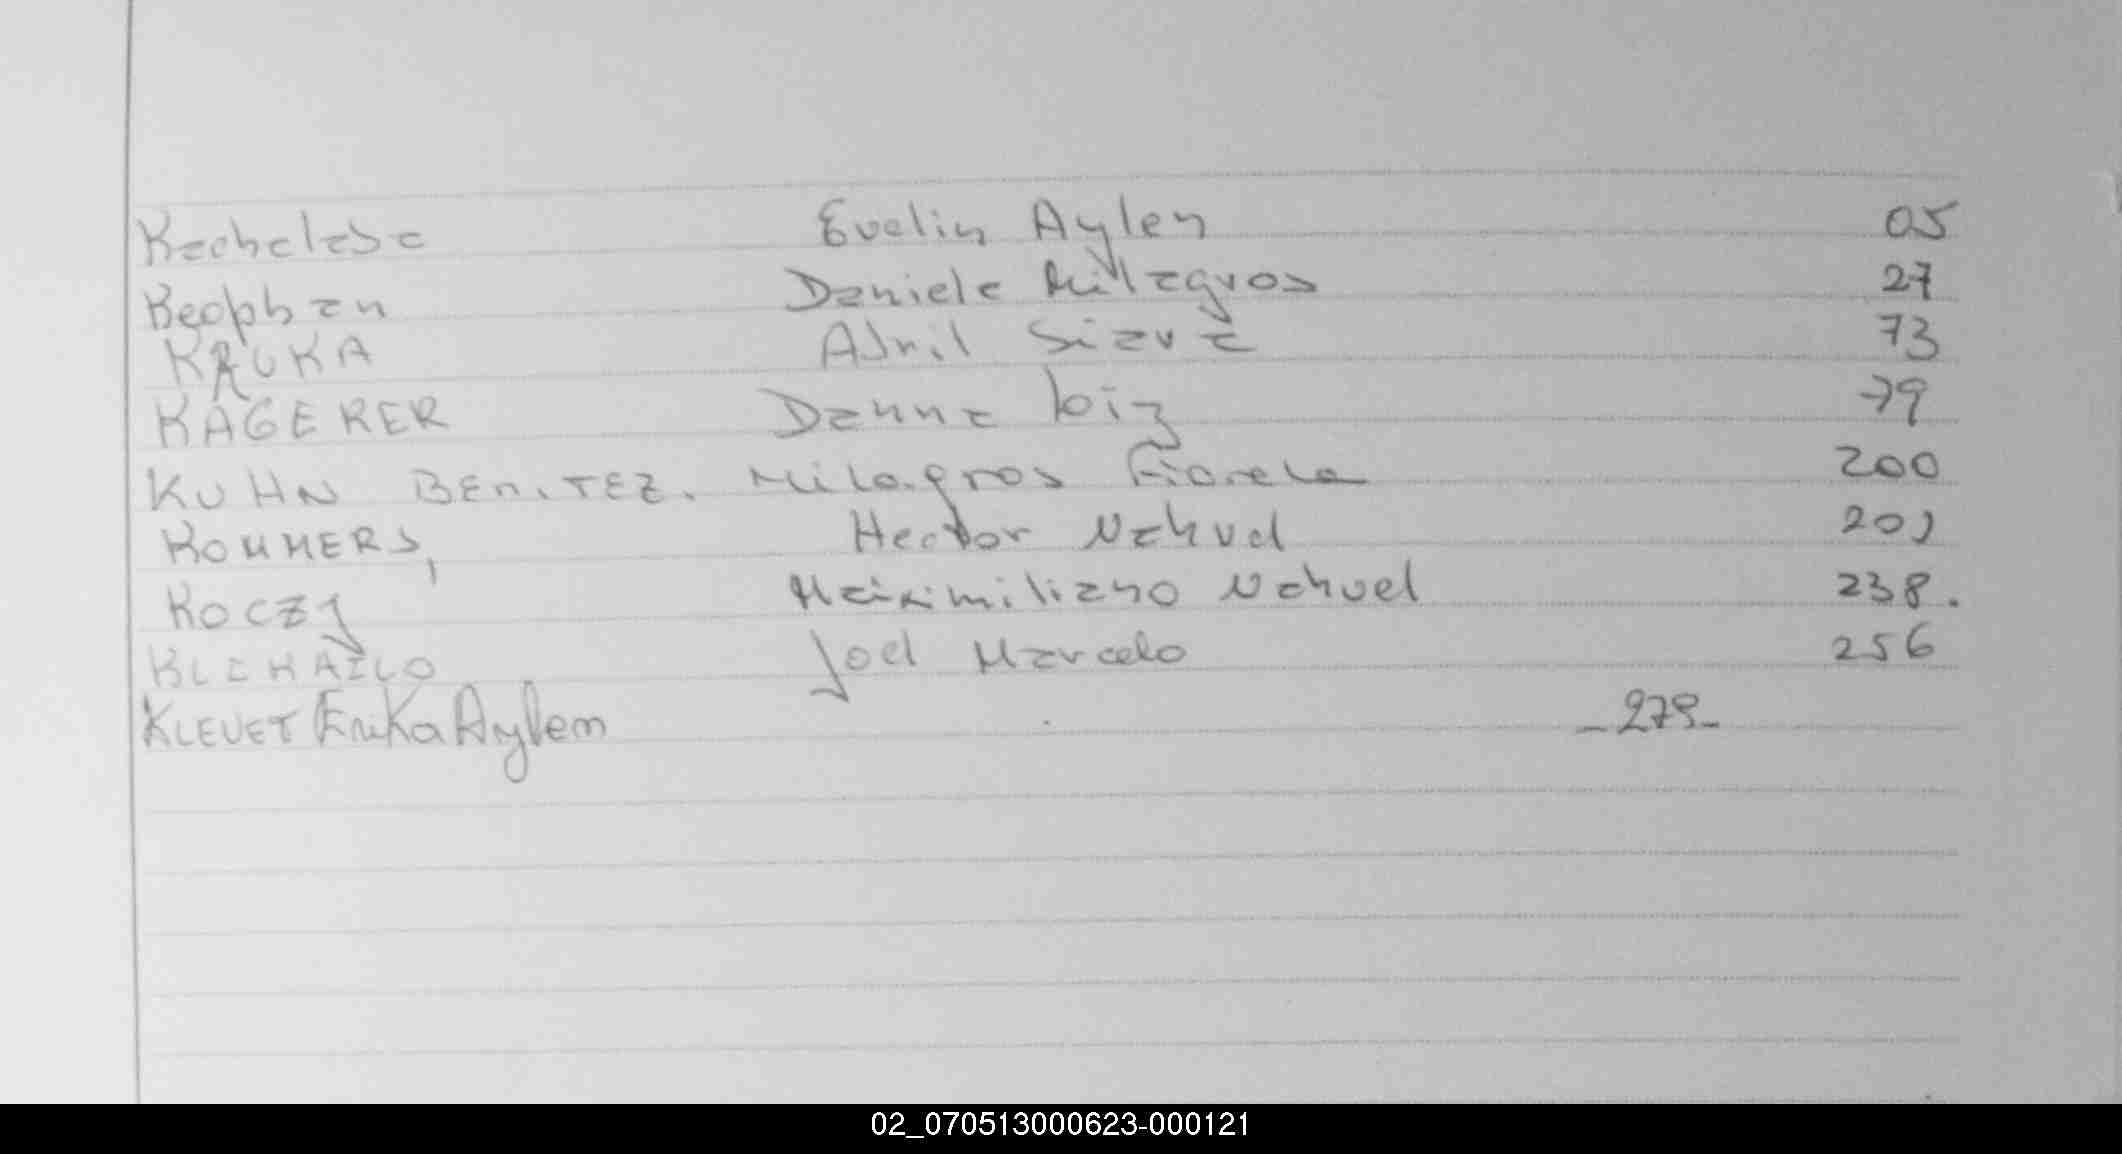 Kachelaba Evelin Aylen 05
Daniela Milagros 27
KRUKA Abril Siava 73
KAGERER Danna Liz 79
KUHN BENITEZ. Milagros Fiorela 200
KOMMERS, Hector Nahuel 201
KOCZY Maiximiliano Nahuel 238.
Joel Marcelo 256
KLEVET Erika Aylem _ 279 _
02_070513000623-000121